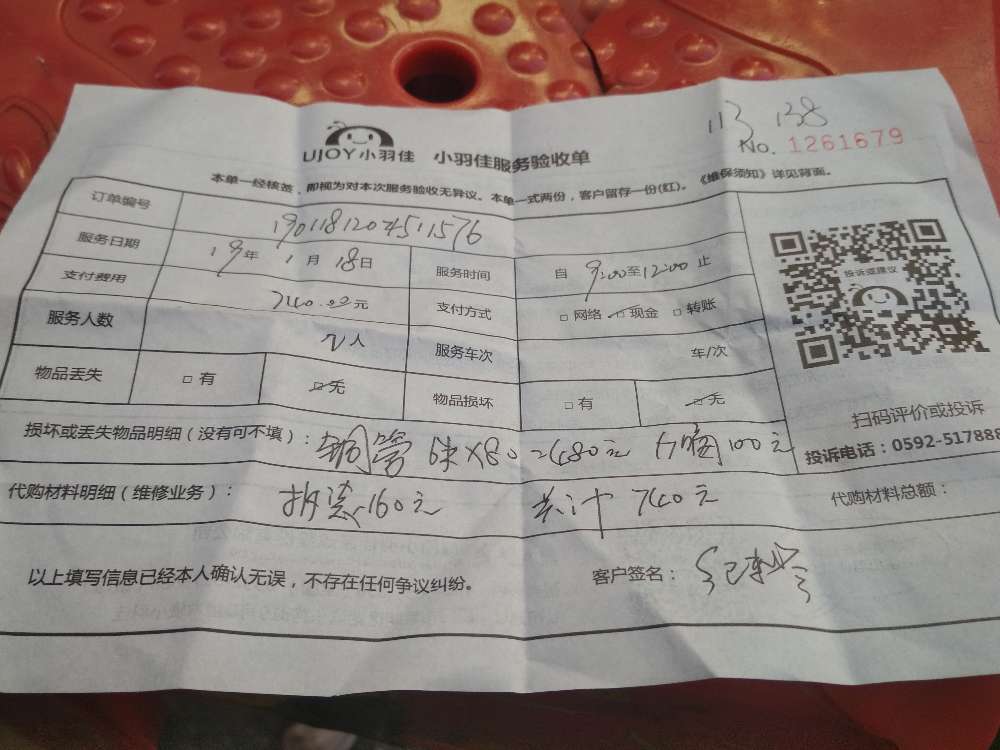 113 138
UJOY小羽佳 小羽佳服务验收单
No. 1261679
本单一经核签,即视为对本次服务验收无异议。本单一式两份,客户留存一份(红)。《维保须知》详见背面。
订单编号 190118120451576
服务日期 19年 1月 18日 服务时间 自 9:00至12:00 止
支付费用 740.00元 支付方式 □网络 □现金 □转账
服务人数 2人 服务车次 车/次
物品丢失 □有 □无 物品损坏 □有 □无
投诉或建议
扫码评价或投诉
投诉电话:0592-517888
损坏或丢失物品明细(没有可不填): 铜管 6米×80=480元 100元
代购材料明细(维修业务): 拆装160元 共计 740元 代购材料总额:
以上填写信息已经本人确认无误,不存在任何争议纠纷。 客户签名: